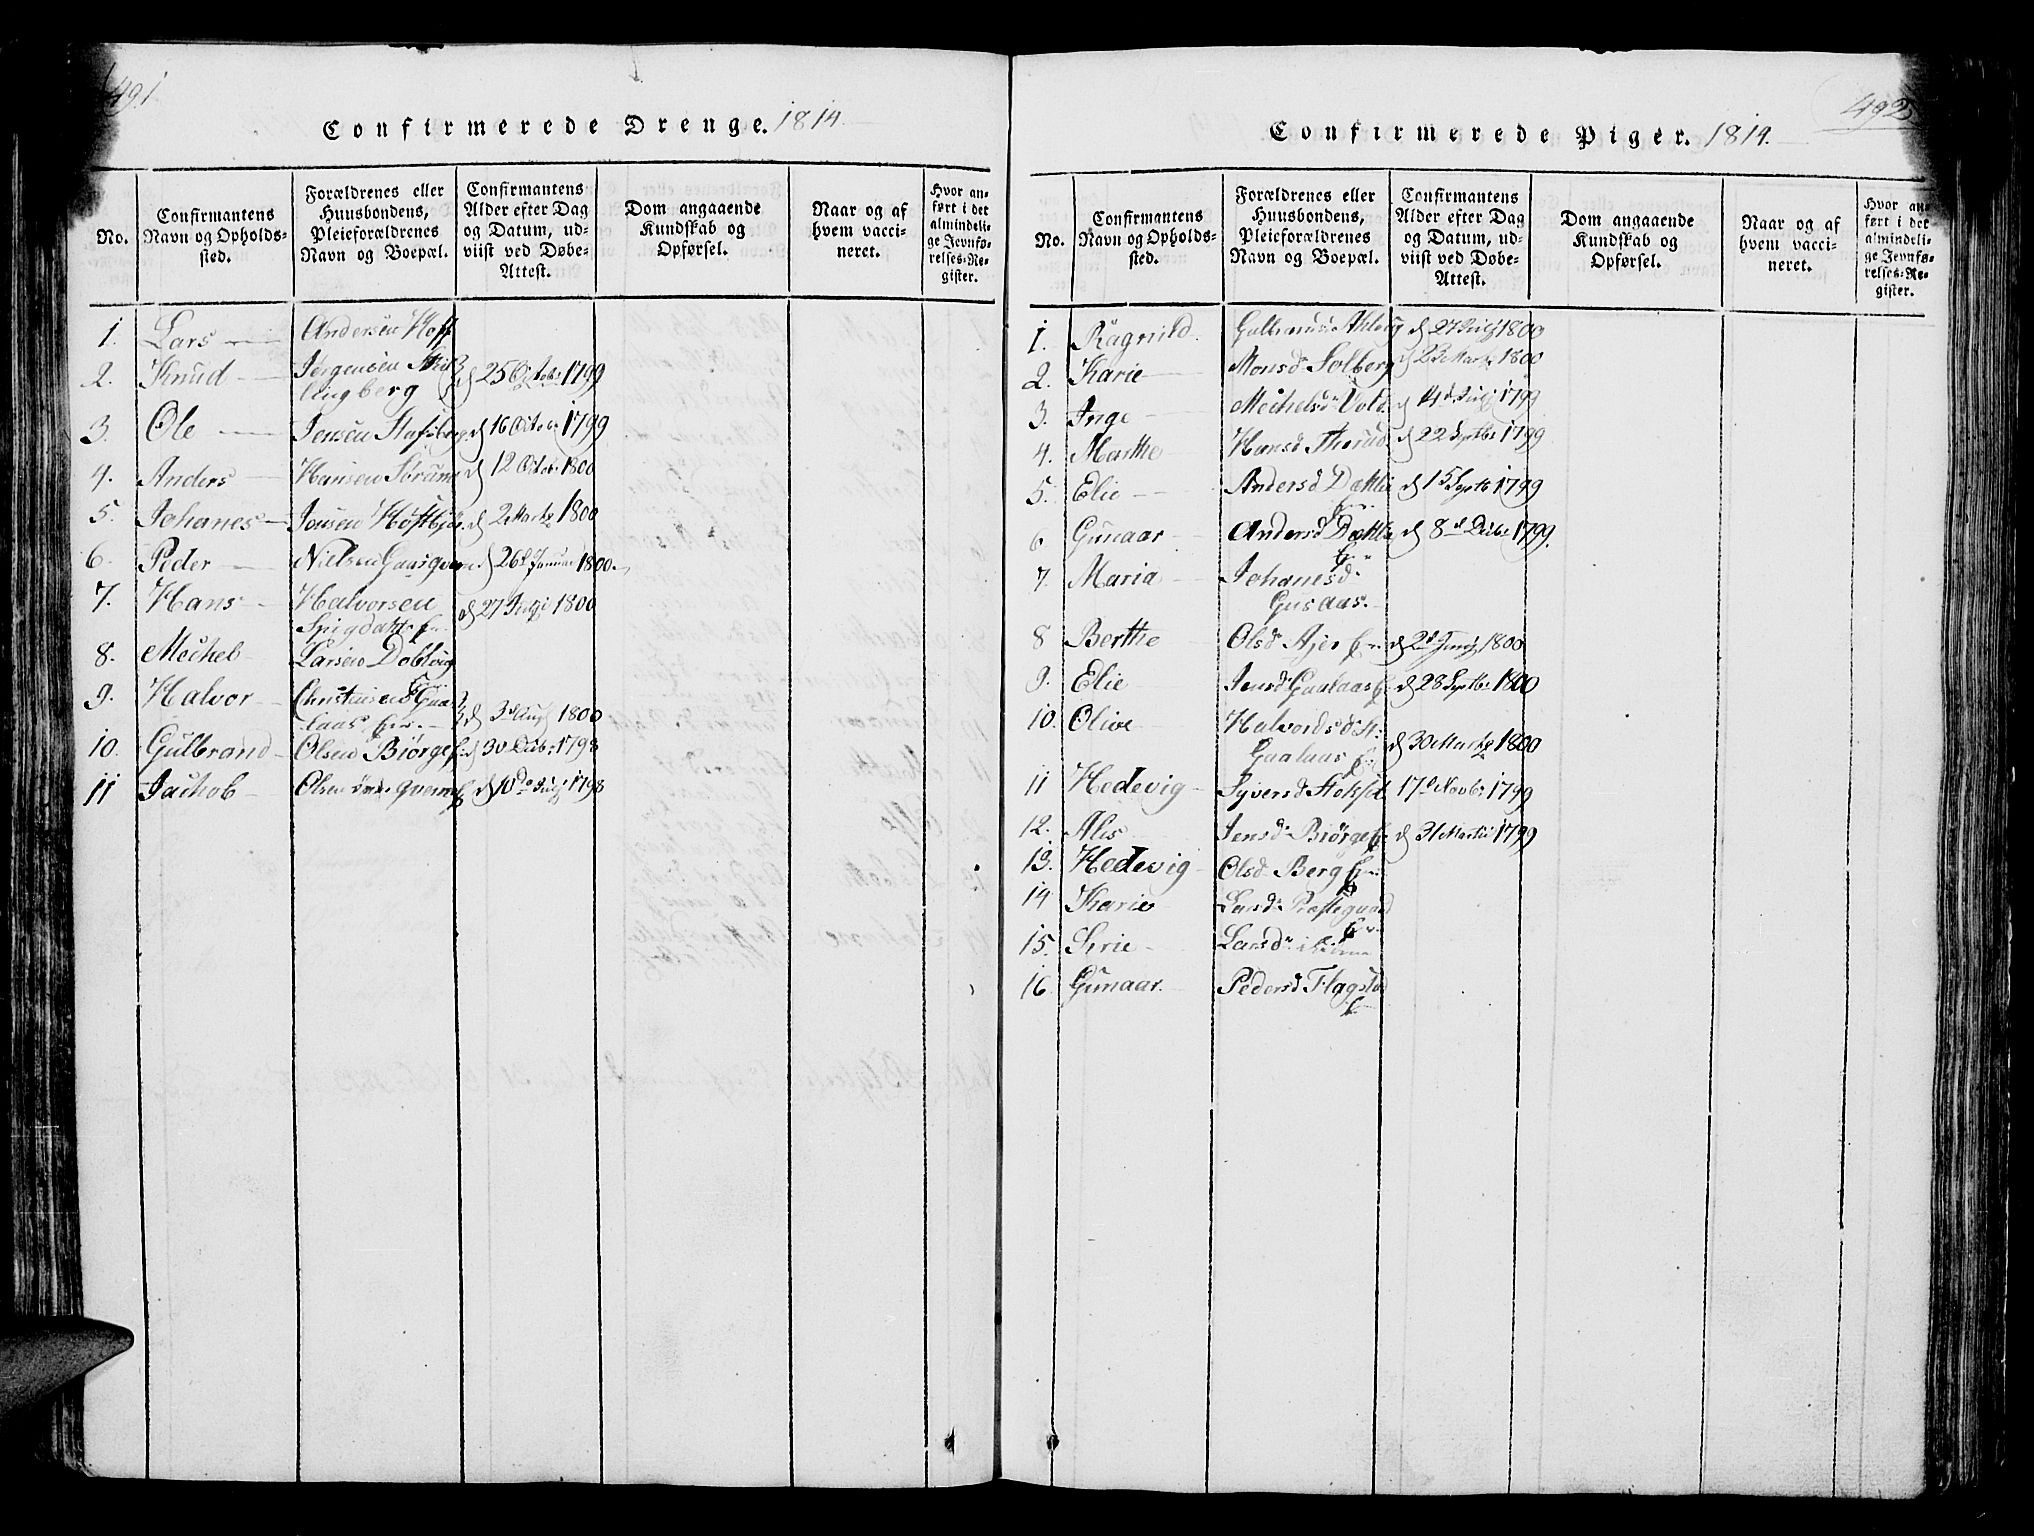 491
Confirmerede Drenge. 1814.
No.
Confirmantens Navn og Opholds-sted.
Forældrenes eller Huusbondens, Pleieforældrenes Navn og Boepæl.
Confirmantens Alder efter Dag og Datum, ud-viist ved Døbe-Attest.
Dom angaaende Kundskab og Opførsel.
Naar og af hvem vacci-neret.
Hvor an-ført i det almindeli-ge Jevnfø-relses-Re-gister.
1. Lars Andersen Hoff
2. Knud Jørgensen
lingberg d 25 Octob: 1799
3. Ole Jensen Stafsberg d 16 Octob: 1799
4. Anders Hansen Sørum d 12 Octob: 1800
5. Johanes Jensen d 2 Martz 1800
6. Peder Nielsen d 26d Januar 1800
7. Hans Halvorsen d 27 1800
8. Mechel Larsen Doblug
9. Halvor Christensen Gaa-
laas d 3d Aug 1800
10. Gulbrand Olsen Biørge d 30 Decbr: 1798
11 Jachob Olsen d 10de July 1798
492
Confirmerede Piger. 1814.
No.
Confirmantens Navn og Opholds-sted.
Forældrenes eller Huusbondens, Pleieforældrenes Navn og Boepæl.
Confirmantens Alder efter Dag og Datum, ud-viist ved Døbe-Attest.
Dom angaaende Kundskab og Opførsel.
Naar og af hvem vacci-neret.
Hvor an-ført i det almindeli-ge Jevnfø-relses-Re-gister.
1. Ragnild d 27 July 1800
2. Karie Monsd Solberg d 23 Martz 1800
3. Inge Mechelsd Vold d 14d July 1799
4. Marthe Hansd d 22 Septbr 1799
5. Elie Andersd Dæhlie d 15 Septb 1799
6 Gunaar Andersd Dæhlie d 8de Decbr 1799.
7. Maria Johanesd
Gusaas.
8 Berthe Olsd Ajer d 2d Junij 1800
9. Elie Jensd Gaalaas d 28 Septbr 1800
10. Olive Halvordsd
Gaalaas d 30 Martz 1800
11 Hedevig Syversd 17d Novbr 1799
12. Alis Jensd Biørge d 31 Martii 1799
13. Hedevig Olsd Berg
14 Karie Larsd Præstegaard
15. Sirie Larsd
16 Gunaar. Pedersd Flagstad